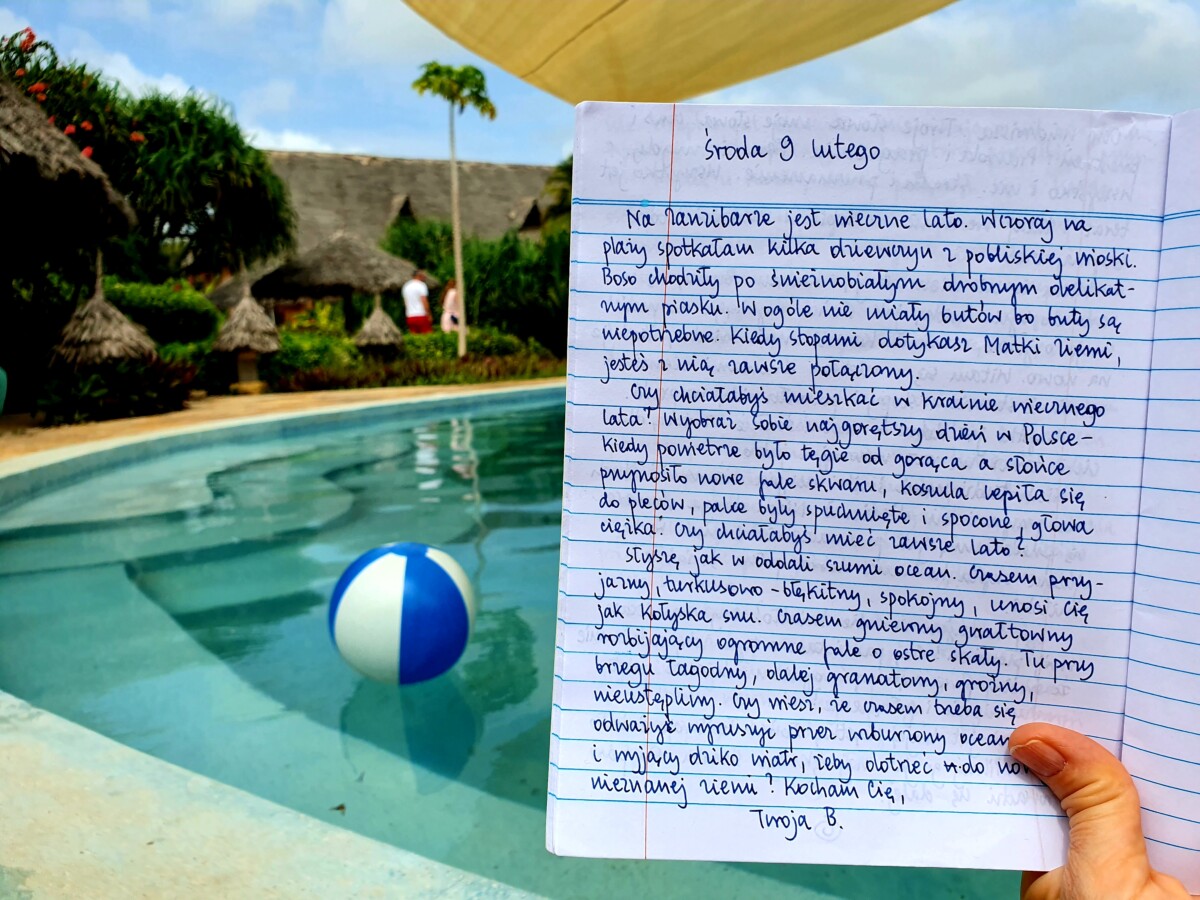 środa 9 lutego
Na Zanzibarze jest wieczne lato. Wczoraj na
plaży spotkałam kilka dziewczyn z pobliskiej wioski.
Boso chodziły po śnieżnobiałym drobnym delikat-
nym piasku. W ogóle nie miały butów bo buty są
niepotrzebne. Kiedy stopami dotykasz Matki Ziemi,
jesteś z nią zawsze połączony.
Czy chciałabyś mieszkać w krainie wiecznego
lata? Wyobraź sobie najgorętszy dzień w Polsce –
kiedy powietrze było tęgie od gorąca a słońce
przynosiło nowe fale skwaru, koszula lepiła się
do pleców, palce były spuchnięte i spocone, głowa
ciężka. Czy chciałabyś mieć zawsze lato?
Słyszę jak w oddali szumi ocean. Czasem przy-
jazny, turkusowo-błękitny, spokojny, unosi Cię
jak kołyska snu. Czasem gniewny gwałtowny
rozbijający ogromne fale o ostre skały. Tu przy
brzegu łagodny, dalej granatowy, groźny,
nieustępliwy. Czy wiesz, że czasem trzeba się
odważyć wyruszyć przez wzburzony
i wyjący dziko wiatr, żeby dotrzeć do
nieznanej ziemi? Kocham Cię,
Twoja B.